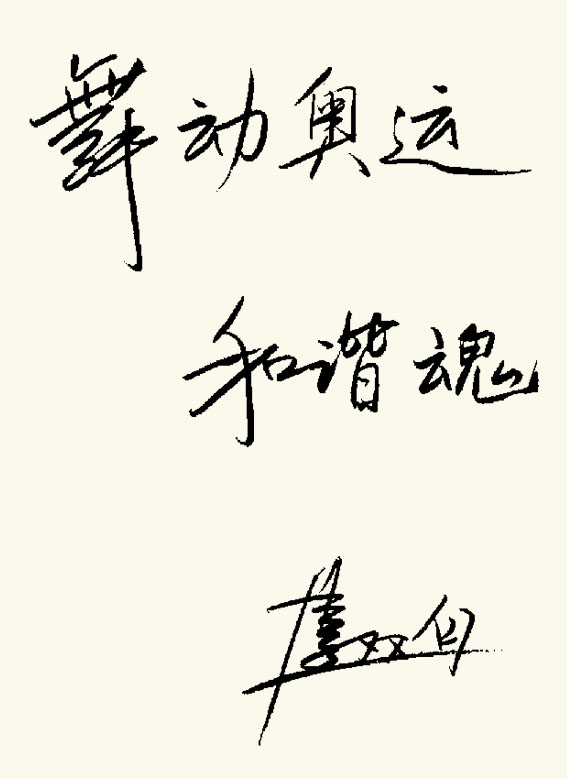 舞动奥运
和谐魂